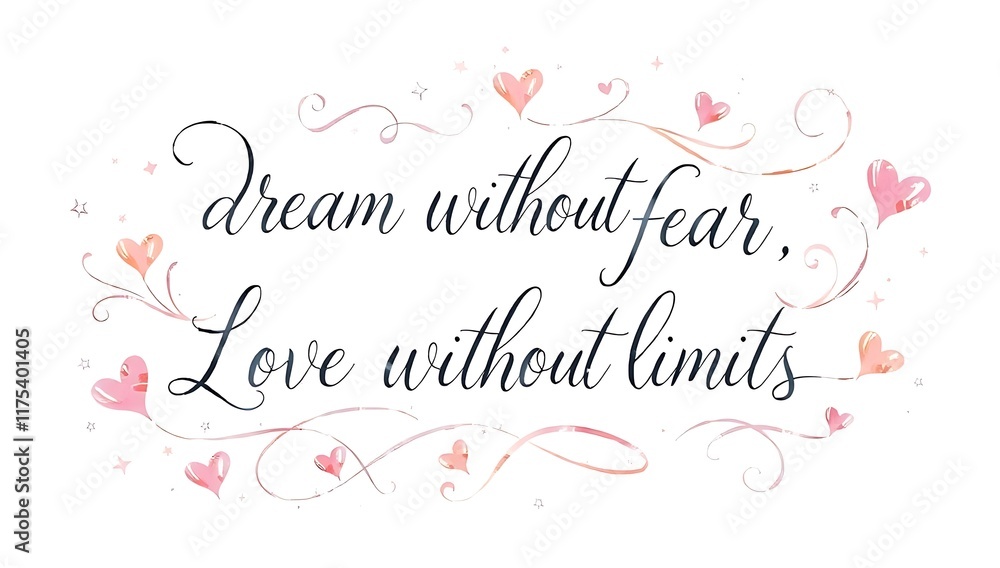 dream without fear,
Love without limits
Adobe Stock | #1175401405